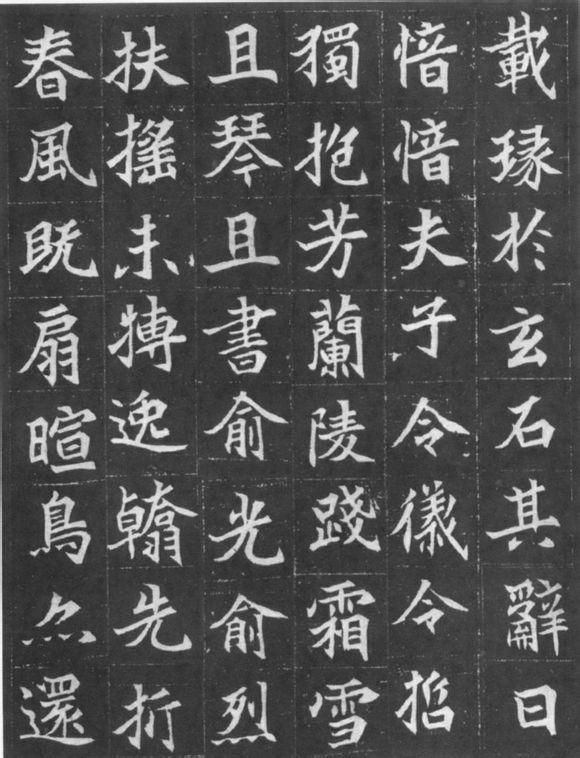 載瑑於玄石其辭曰
愔愔夫子令儀令哲
獨抱芳蘭陵踐霜雪
且琴且書俞光俞烈
扶搖未搏逸翰先折
春風既扇暄鳥尒還